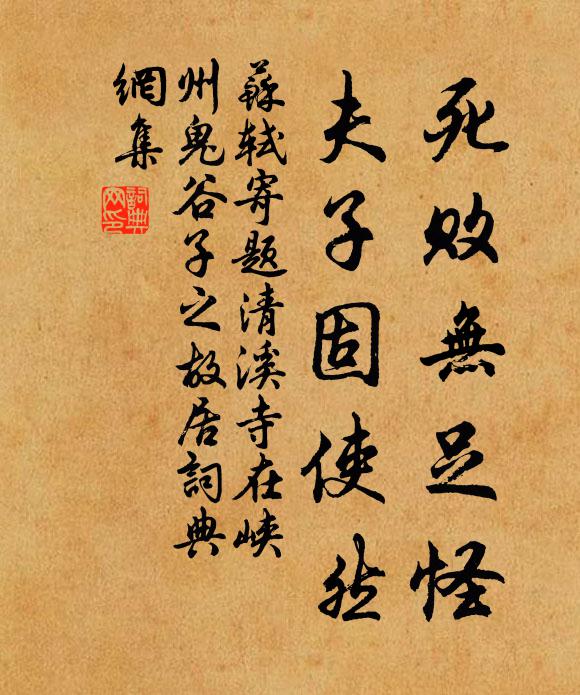 死敗無足怪
夫子固使然
蘇軾寄題清溪寺在峽
州鬼谷子之故居詞典
網集
詞典
网印